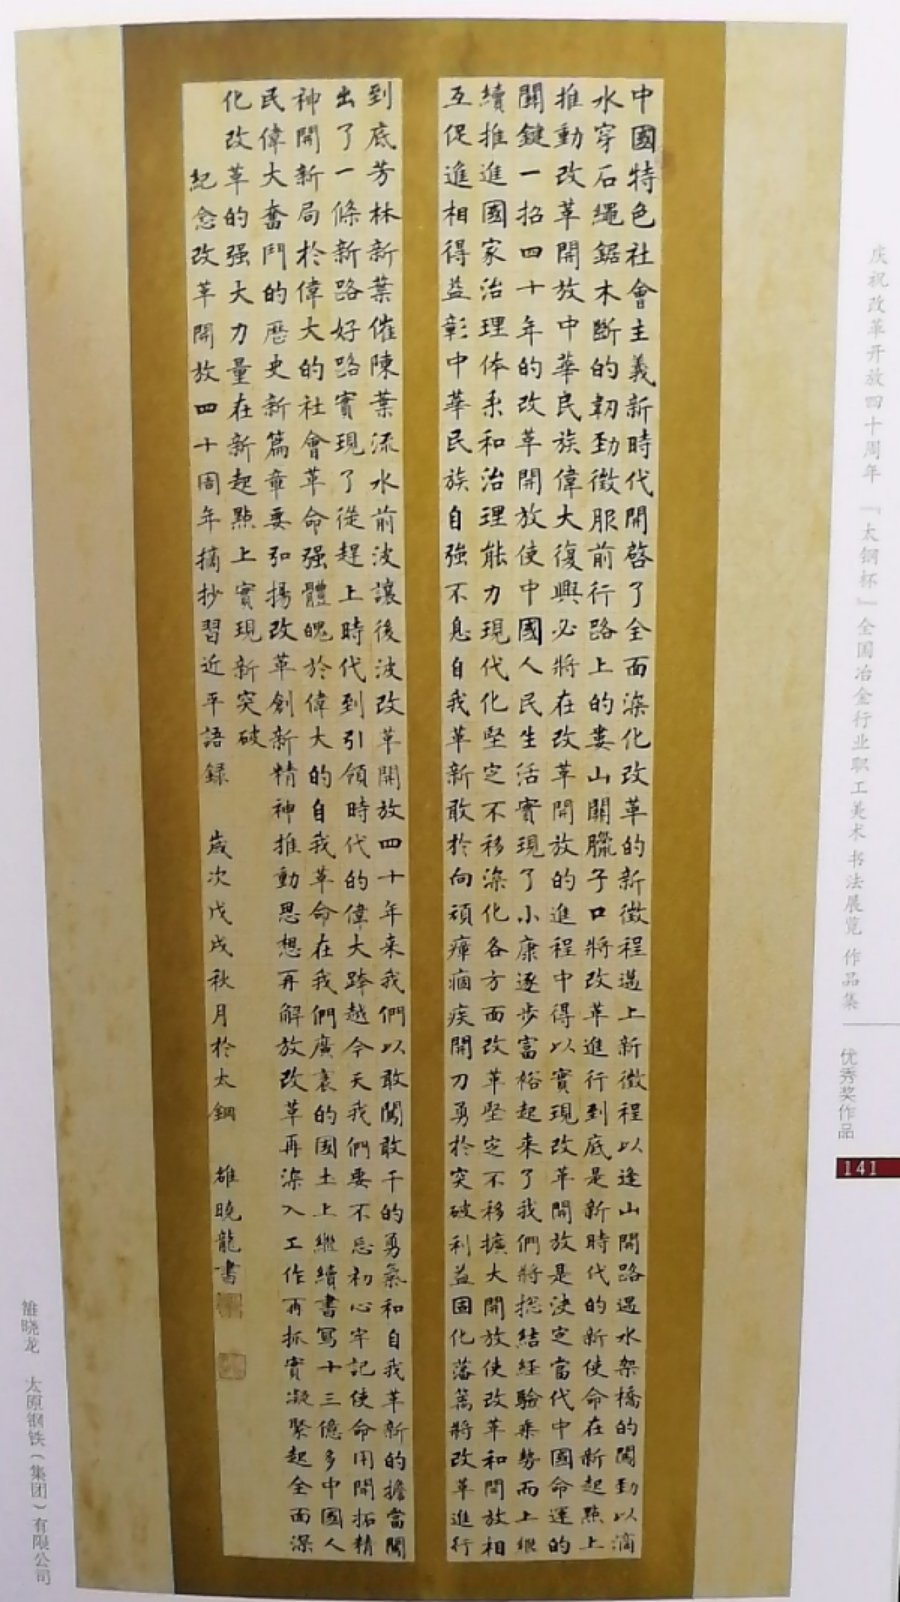 中國特色社會主義新時代開啓了全面深化改革的新徵程邁上新徵程以逢山開路遇水架橋的闖勁以滴
水穿石繩鋸木斷的韌勁徵服前行路上的婁山關臘子口將改革進行到底是新時代的新使命在新起點上
推動改革開放中華民族偉大復興必將在改革開放的進程中得以實現改革開放是決定當代中國命運的
關鍵一招四十年的改革開放使中國人民生活實現了小康逐步富裕起来了我們將揔結經驗乘勢而上継
續推進國家治理体系和治理能力現代化堅定不移深化各方面改革堅定不移擴大開放使改革和開放相
互促進相得益彰中華民族自強不息自我革新敢於向頑瘴痼疾開刀勇於突破利益固化藩籬將改革進行
到底芳林新葉催陳葉流水前波讓後波改革開放四十年来我們以敢闖敢干的勇氣和自我革新的擔當闖
出了一條新路好路實現了從趕上時代到引領時代的偉大跨越今天我們要不忘初心牢記使命用開拓精
神開新局於偉大的社會革命强體魄於偉大的自我革命在我們廣袤的國土上繼續書寫十三億多中國人
民偉大奮鬥的歷史新篇章要弘揚改革創新精神推動思想再解放改革再深入工作再抓實凝聚起全面深
化改革的强大力量在新起點上實現新突破
紀念改革開放四十周年摘抄習近平語録 歲次戊戌秋月於太鋼 雒曉龍書
庆祝改革开放四十周年 『太钢杯』全国冶金行业职工美术书法展览 作品集
优秀奖作品
141
雒晓龙 太原钢铁(集团)有限公司